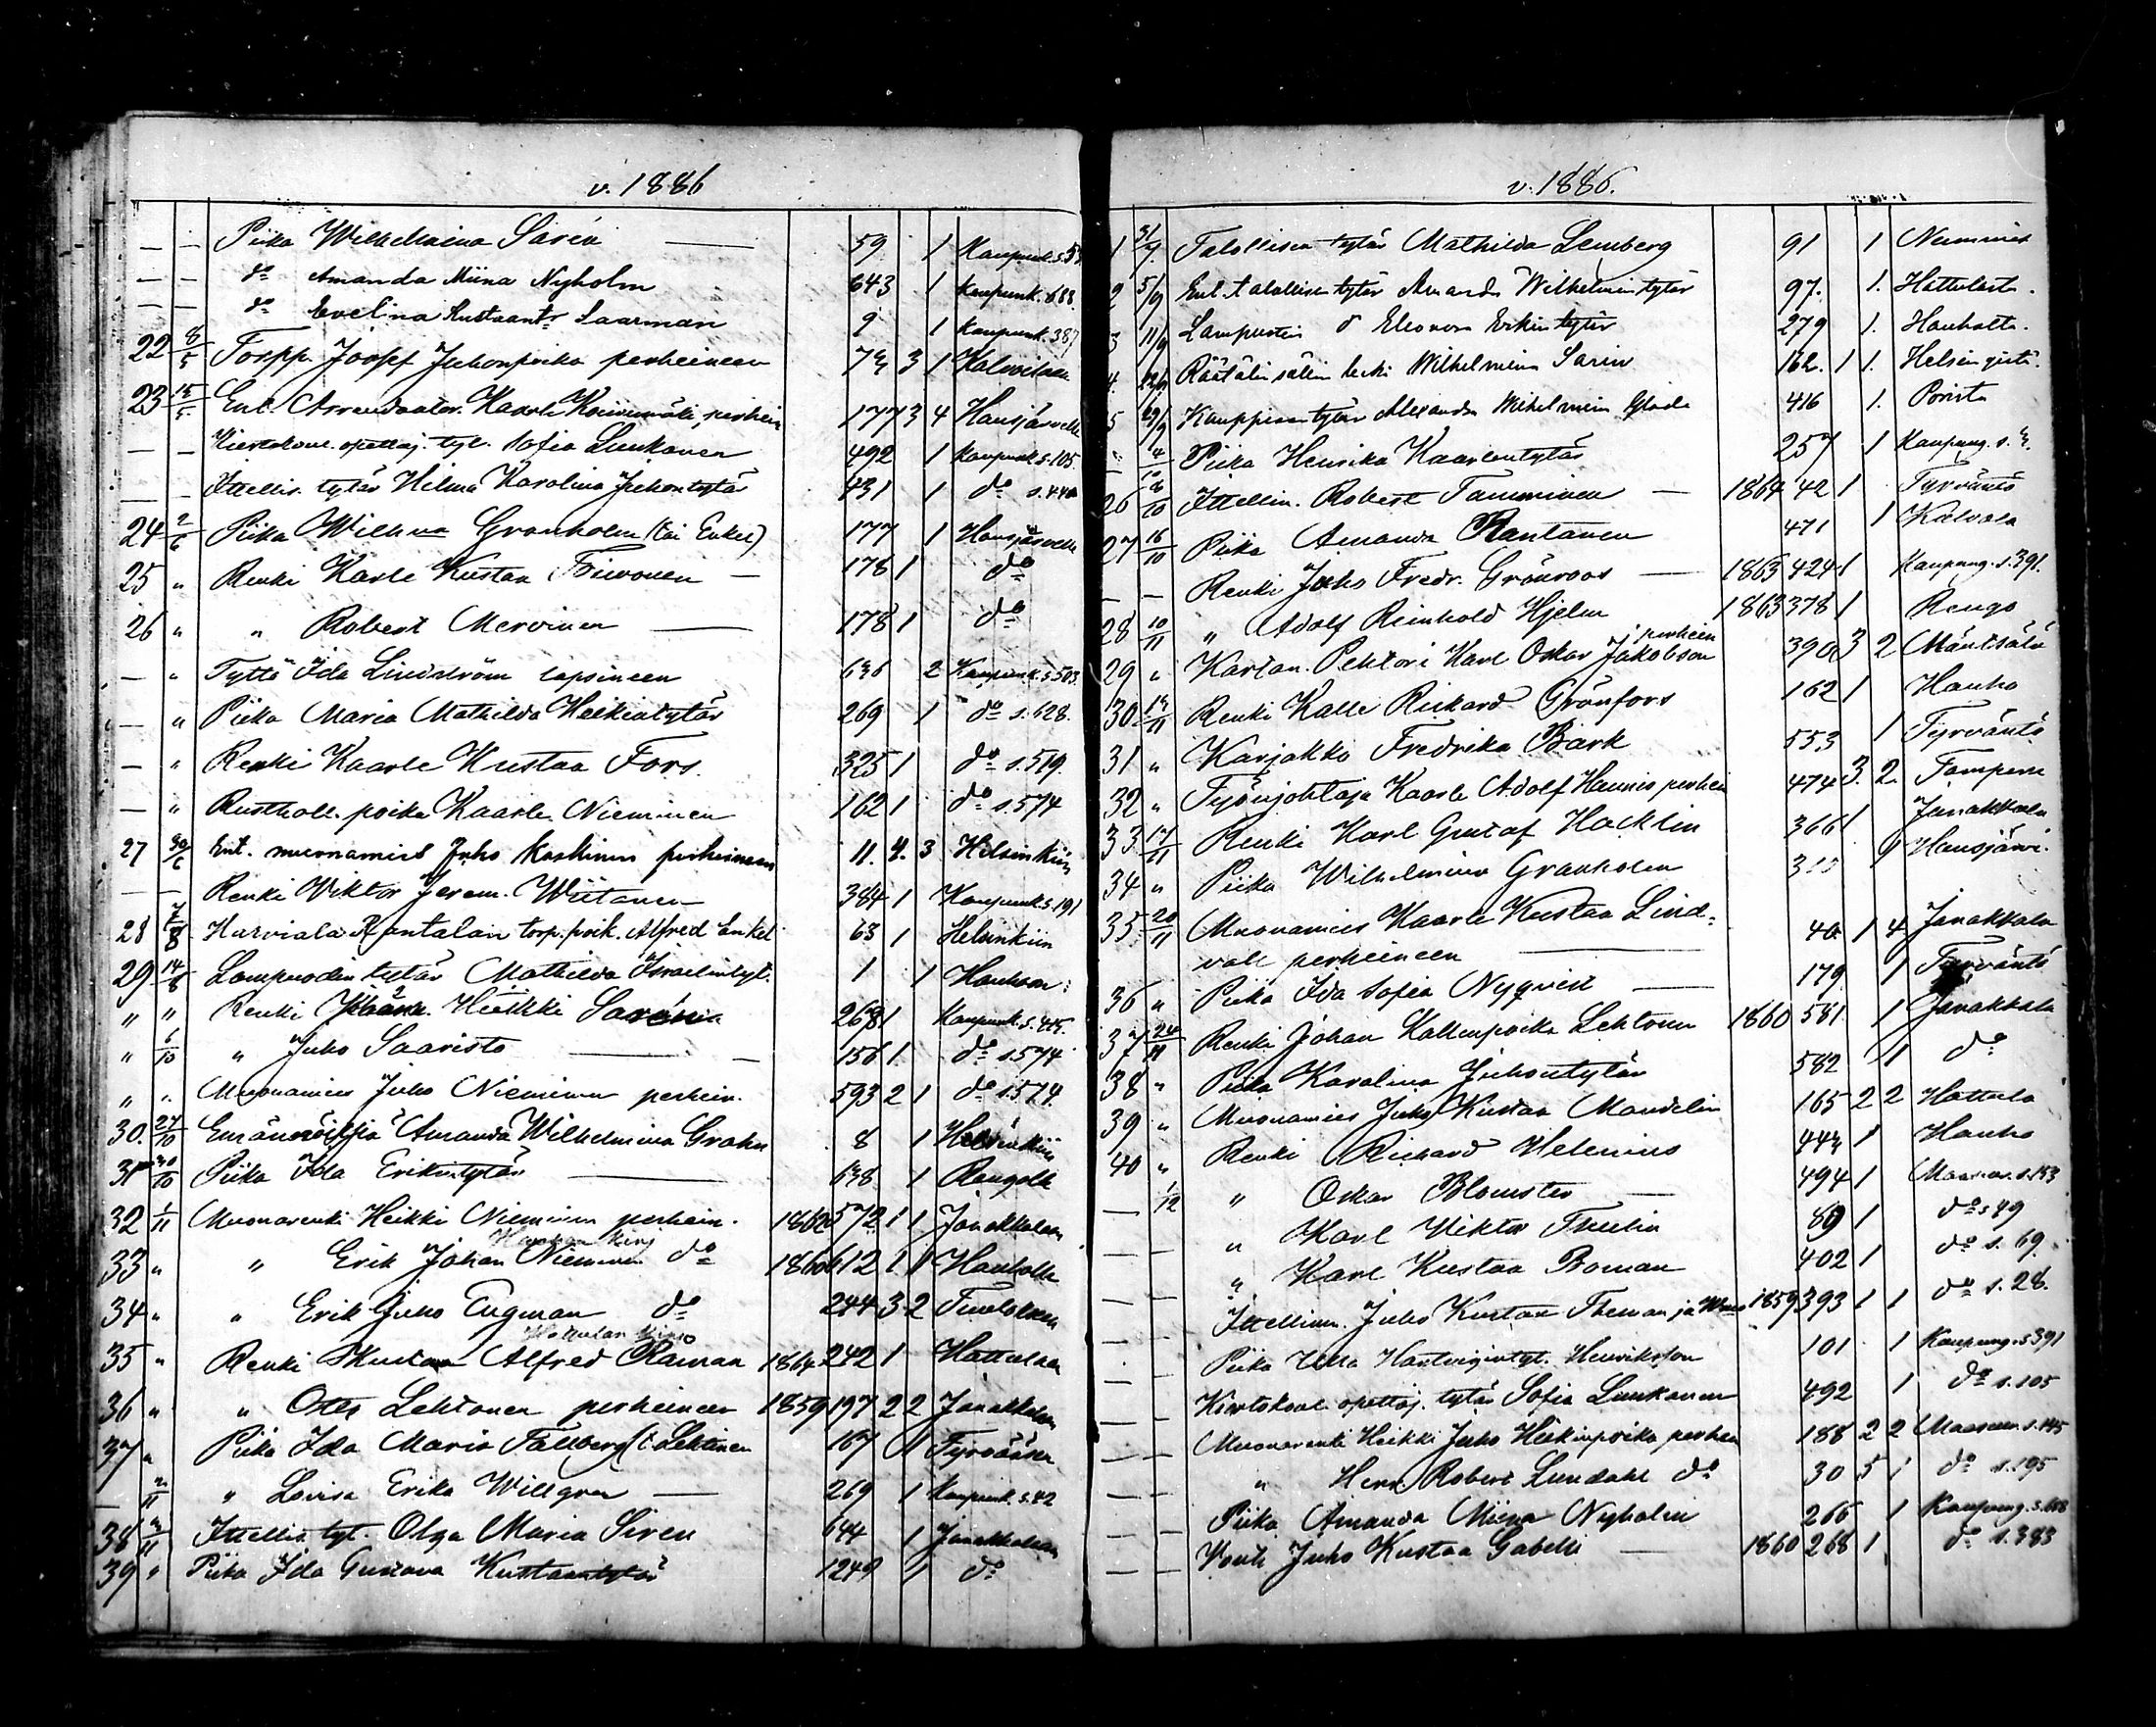 v. 1886
— — Piika Wilhelmina Sarén — 59 1 Kaupunk. s.53
— — do Amanda Miina Nyholm 643 1 Kaupunk. 688
— — do Evelina Kustaant. Saarman 9 1 Kaupunk. 387
22 8/5 Torpp. Josef Juhonpoika perheineen 72 3 1 Kalvolaan
23 15/5 Ent. Arrendaator. Kaarle Koivumäki, perhein 177 3 4 Hausjärvelle
— — Kiertokoul. opettaj. tyt. Sofia Luukanen 492 1 Kaupunk s.105
— — Itellis. tytär Hilma Karolina Juhontytär 431 1 do s.440
24 2/6 Piika Wilhma Granholm (tai Enkel) 177 1 Hausjärvelle
25 " Renki Karle Kustaa Toivonen — 178 1 do
26 " " Robert Mervinen — 178 1 do
— " Tyttö Ida Lindström lapsineen 636 2 Kaupunk. s.503.
— " Piika Maria Mathilda Heikintytär 269 1 do s.628.
— " Renki Kaarle Kustaa Fors. 325 1 do s.519.
— " Rusthol. poika Kaarle Nieminen 162 1 do s.574
27 30/6 Ent. muonamies Juho Koskinen perheineen 11. 4. 3 Helsinkiin
— — Renki Viktor Jerem. Wiitanen 384 1 Kaupunk. s.191
28 7/8 Harviala Rantalan torp. poik. Alfred Enkel 63 1 Helsinkiin
29 14/8 Lampuodin tytär Mathilda Israelintyt. 1 1 Hauhoon
" " Renki Heikki Sarén 268 1 Kaupunk. s.415.
" 6/10 " Juho Saaristo — 156 1. do s.574
" " Muonamies Juho Nieminen perhein. 593 2 1 do s.574.
30. 27/10 Emännöitsiä Amanda Wilhelmina Grahn 8 1 Helsinkiin
31 30/10 Piika Ida Erikintytär — 638 1 Rengolle
32 1/11 Muonarenki Heikki Nieminen perhein. 1862 572 1 1 Janakkalaan
Hauhon kirj
33 " " Erik Johan Nieminen do 1860 612 1 1 Hauholle
34 " " Erik Juho Engman do 244 3 2 Tuulokseen
Hattulan kirj
35 " Renki Kustaa Alfred Råman 1864 242 1 Hattulaan
36 " " Otto Lehtonen perheineen 1859 197 2 2 Janakkalaan
37 " Piika Ida Maria Fallberg (t. Lehtinen 167 1 Tyrväässä
2/11 " Lovisa Erika Willgren — 269 1 Kaupunk. s.42
38 3/11 Itellis. tyt. Olga Maria Siren 644 1 Janakkalaan
39 " Piika Ida Gustava Kustaantytär 1249 1 do
v. 1886.
1 31/7. Talollisen tytär Mathilda Lemberg 91 1 Nummis
2 5/9 Ent. talollisen tytär Amanda Wilhelmintytär 97. 1. Hattulasta.
3 11/9 Lampuotin do Eleonora Erkintytär 279 1. Hauholta.
4 22/9 Räätälinsälin leski Wilhelmina Sarin 162. 1 1. Helsingistä.
5 29/9 Kauppiaan tytär Alexandra Wilhelmina Glade 416 1. Porista
— 4/10 Piika Henrika Kaarlentytär 257 1 Kaupung. s. 2.
26 6/10 Itellin. Robert Tamminen — 1864 42 1 Tyrväntö
27 16/10 Piika Amanda Rantanen 471 1 Kalvola
— — Renki Juho Fredr. Grönroos — 1863 424 1 Kaupung. s.391.
28 10/11 " Adolf Reinhold Hjelm 1863 378 1 Rengo
29 " Kartan. Pehtori Karl Oskar Jakobson perhein 390 3 2 Mäntsälä
30 12/11 Renki Kalle Rickard Grönfors 162 1 Hauho
31 " Karjakko Fredrika Bärk 553 1 Tyrväntö
32 " Työnjohtaja Kaarle Adolf Hannis perhein 474 3. 2. Tampere
33 17/11 Renki Karl Gustaf Hacklin 366 1 Janakkala
34 " Piika Wilhelmina Granholm 1 Hausjärvi.
35 20/11 Muonamies Kaarle Kustaa Lind-
vall perheineen — 40 1 4 Janakkala
36 " Piika Ida Sofia Nyqvist — 179 1 Tyrväntö
37 24/11 Renki Johan Kallenpoika Lehtonen 1860 581 1 Janakkala
38 " Piika Karolina Juhontytär 582 1 do
39 " Muonamies Juho Kustaa Mandelin 165 2 2 Hattula
40 " Renki Richard Helenius 442 1 Hauho
— 1/12 " Oskar Blomster — 494 1 Maaseur. s.153
— — " Karl Viktor Thulin 89 1 do s 49
— — " Karl Kustaa Boman 402 1 do s. 69.
— — Itellinn. Juho Kustaa Theman ja 1859 393 1 1 do s. 28.
— — Piika Ulla Hartvigintyt. Henriksson 101 1 Kaupung. s391
— — Kiertokoul. opettaj. tytär Sofia Luukanen 492 1 do s.105
— — Muonarenki Heikki Juho Heikinpoika perhein 188 2 2 Maaseur. s.145
— — " Herr. Robert Lundahl do 30 5 1 do s.195
— — Piika Amanda Miina Nyholm 266 1 Kaupung. s.668
— — Vouti Juho Kustaa Gabelli — 1860 268 1 do s.383